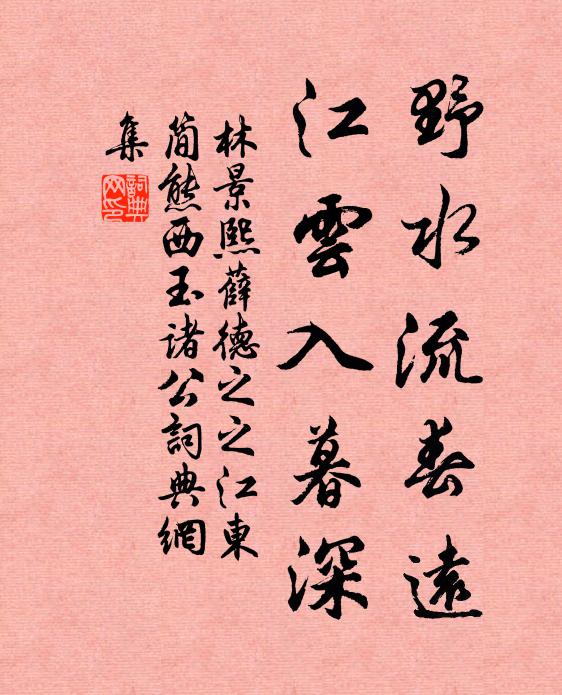 野水流春遠
江雲入暮深
林景熙薛德之之江東
简熊西玉诸公詞典網
集
詞典
网印